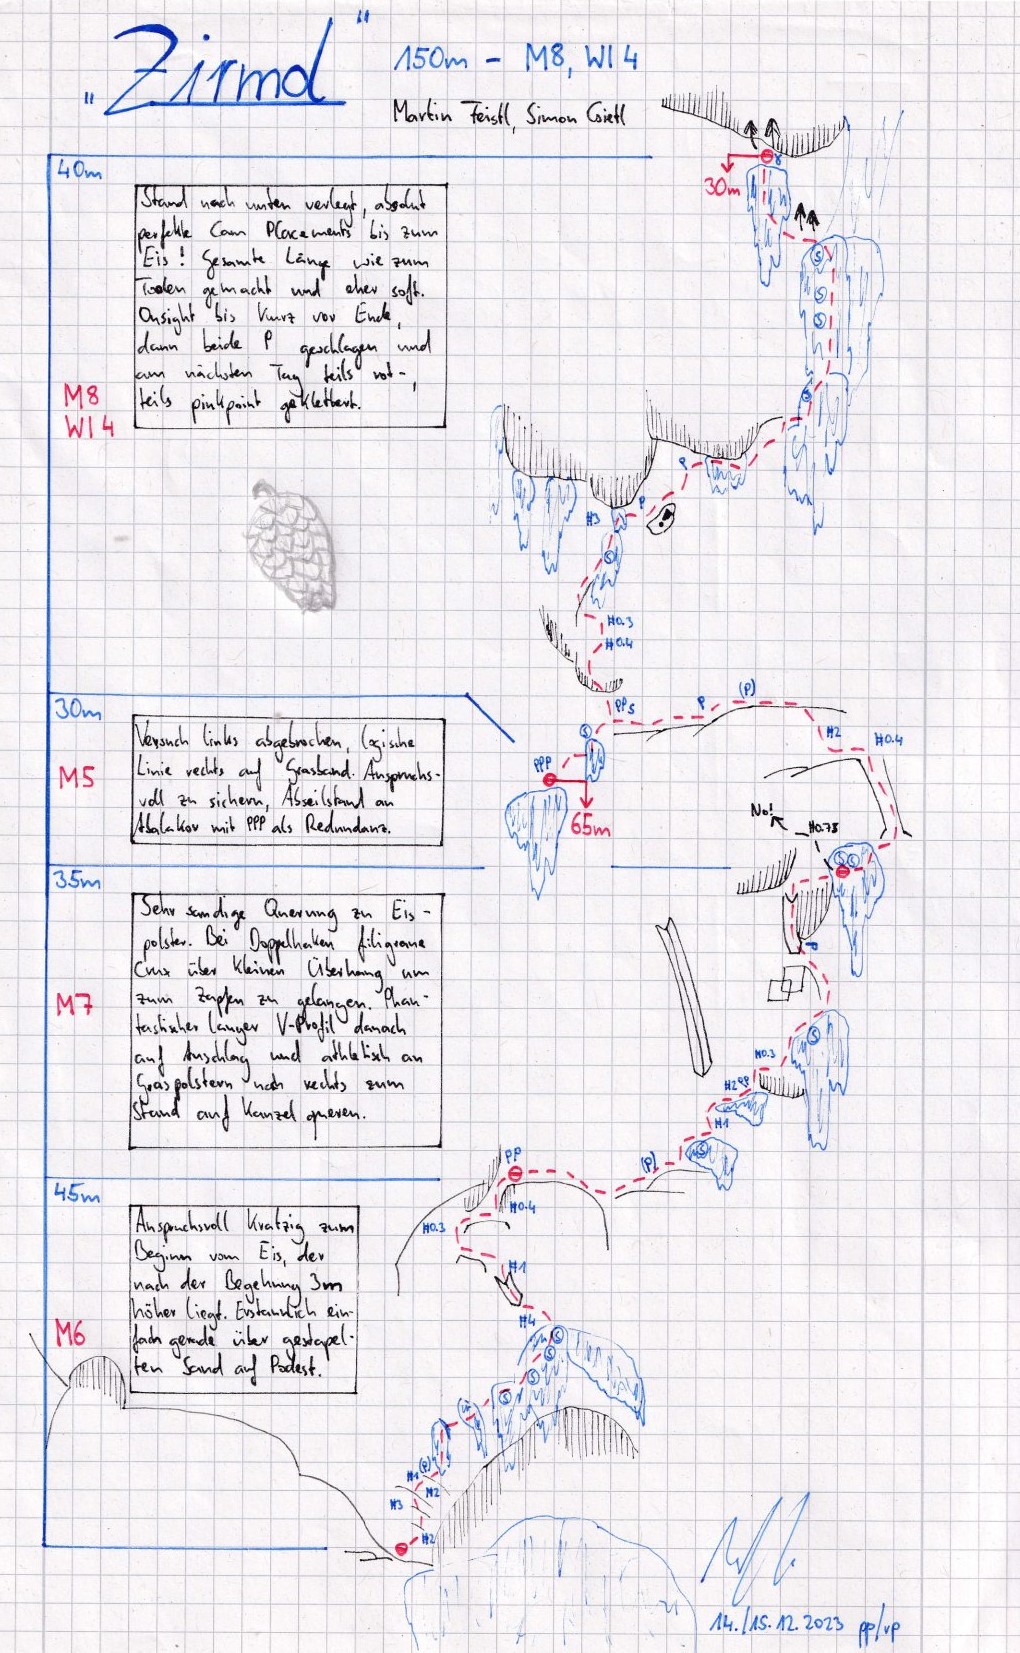 „Zirmol“
150m - M8, WI4
Martin Feistl, Simon Gietl
40m
30m
Stand nach unten verlegt, absolut
perfekte Cam Placements bis zum
Eis! Gesamte Länge wie zum
Tooden gemacht und eher soft.
Onsight bis kurz vor Ende,
dann beide P geschlagen und
am nächsten Tag teils rot-,
teils pinkpoint geklettert.
M8
WI4
S
S
S
S
P
P
H3
!
S
H0.3
H0.4
30m
PPS
P
(P)
H2
H0.4
S
PPP
65m
Versuch links abgebrochen, logische
Linie rechts auf Grasband. Anspruchs-
voll zu sichern, Abseilstand an
Abalakov mit PPP als Redundanz.
M5
No!
H0.75
S S
35m
Sehr sandige Querung zu Eis-
polster. Bei Doppelhaken filigrane
Crux über kleinen Überhang um
zum Zapfen zu gelangen. Phan-
tastischer langer V-Profil danach
auf Anschlag und athletisch an
Graspolstern nach rechts zum
Stand auf Kanzel queren.
M7
P
S
H0.3
H2 PP
H1
S
(P)
PP
H0.4
H0.3
H1
H4
45m
Anspruchsvoll kratzig zum
Beginn vom Eis, der
nach der Begehung 3m
höher liegt. Erstaunlich ein-
fach gerade über gestapel-
ten Sand auf Podest.
M6
S
S
S
S
(P)
H2
H3
H2
14./15.12.2023 pp/vp